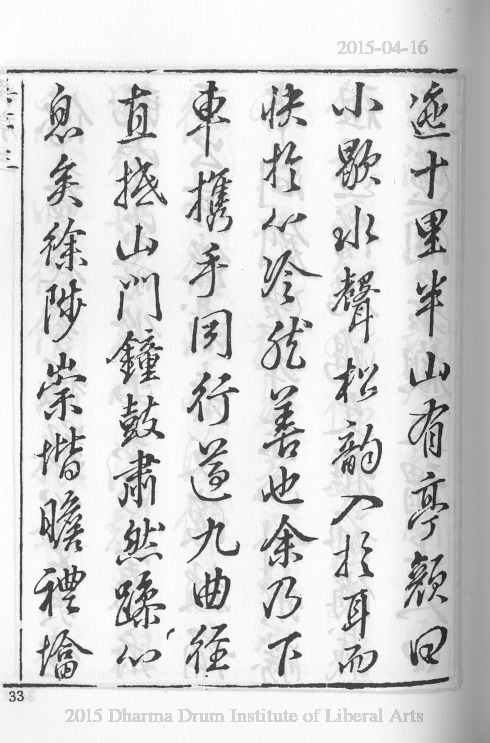 2015-04-16
遠十里半山有亭顏曰
小歇水聲松韵入於耳而
快於心冷然善也余乃下
車攜手同行道九曲徑
直抵山門鐘鼓肅然躁心
息矣徐陟崇堦瞻禮墖
33
2015 Dharma Drum Institute of Liberal Arts